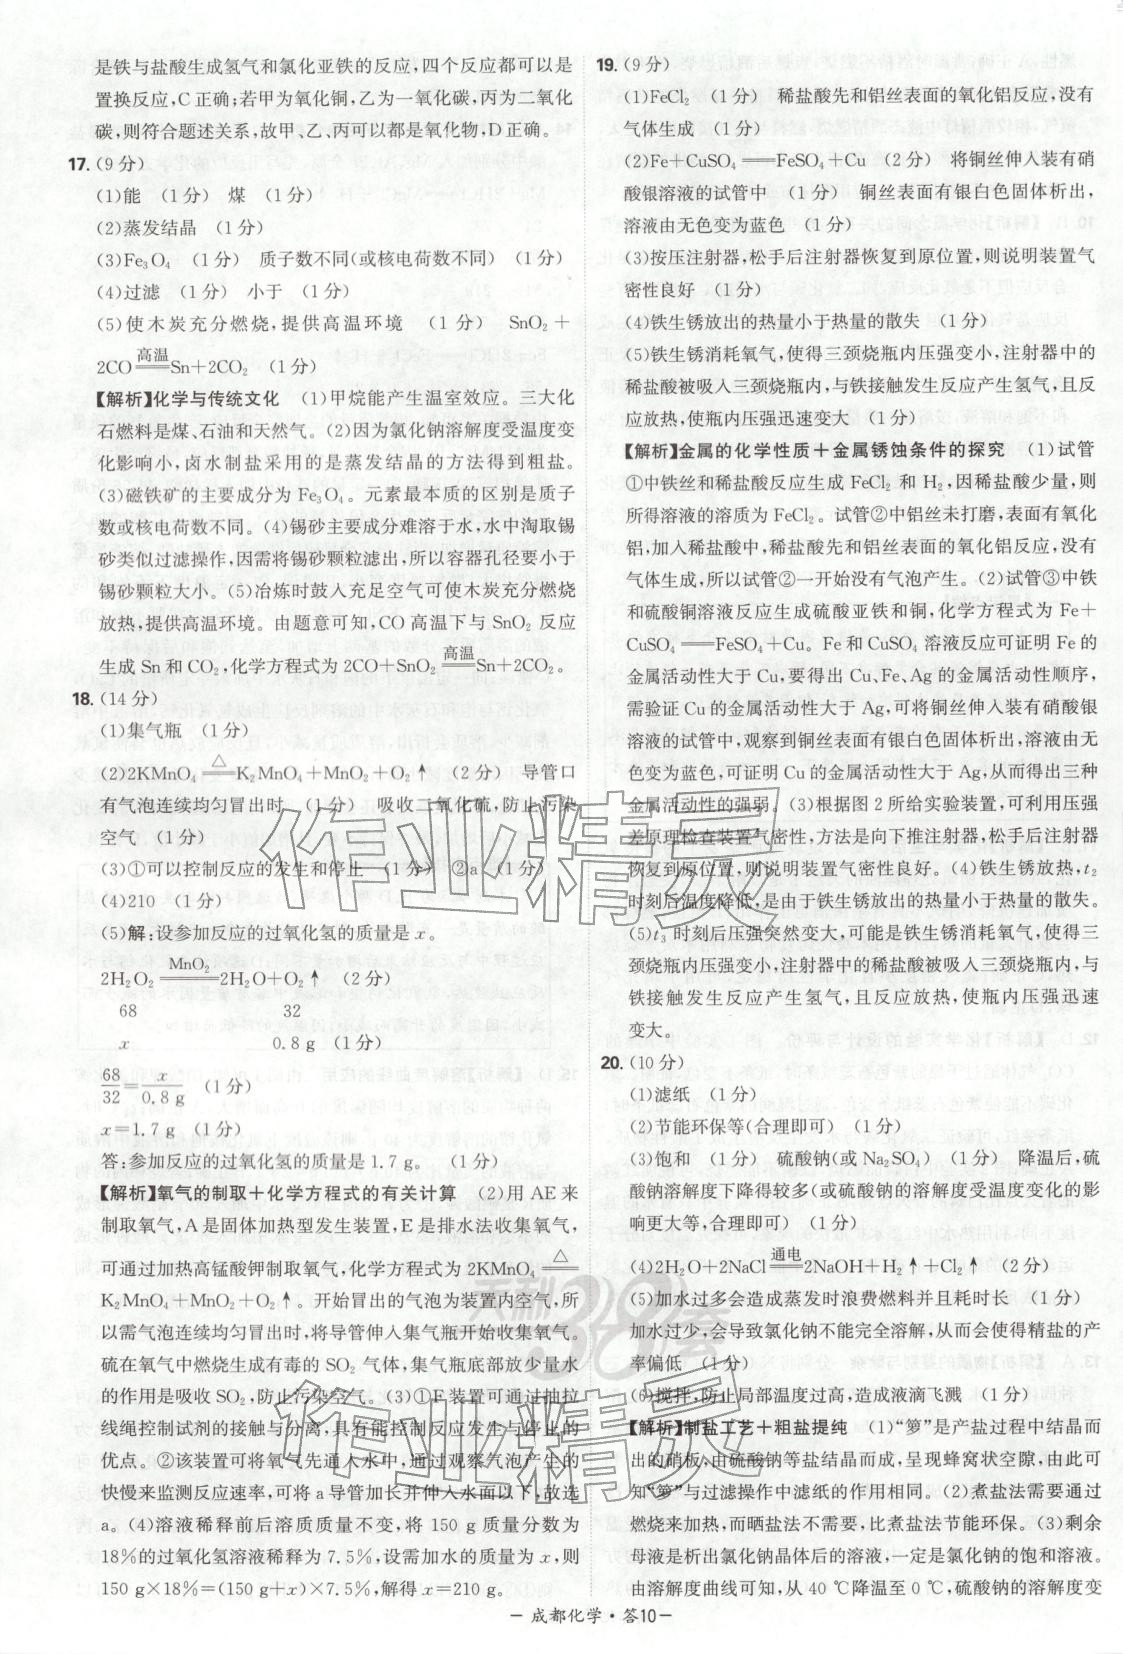 是铁与盐酸生成氢气和氯化亚铁的反应,四个反应都可以是
置换反应,C正确;若甲为氧化铜,乙为一氧化碳,丙为二氧化
碳,则符合题述关系,故甲、乙、丙可以都是氧化物,D正确。
17.(9分)
(1)能 (1分) 煤 (1分)
(2)蒸发结晶 (1分)
(3)Fe₃O₄ (1分) 质子数不同(或核电荷数不同) (1分)
(4)过滤 (1分) 小于 (1分)
(5)使木炭充分燃烧,提供高温环境 (1分) SnO₂+
高温
2CO══Sn+2CO₂ (1分)
【解析】化学与传统文化 (1)甲烷能产生温室效应。三大化
石燃料是煤、石油和天然气。(2)因为氯化钠溶解度受温度变
化影响小,卤水制盐采用的是蒸发结晶的方法得到粗盐。
(3)磁铁矿的主要成分为Fe₃O₄。元素最本质的区别是质子
数或核电荷数不同。(4)锡砂主要成分难溶于水,水中淘取锡
砂类似过滤操作,因需将锡砂颗粒滤出,所以容器孔径要小于
锡砂颗粒大小。(5)冶炼时鼓入充足空气可使木炭充分燃烧
放热,提供高温环境。由题意可知,CO高温下与SnO₂反应
高温
生成Sn和CO₂,化学方程式为2CO+SnO₂══Sn+2CO₂。
18.(14分)
(1)集气瓶 (1分)
△
(2)2KMnO₄══K₂MnO₄+MnO₂+O₂↑ (2分) 导管口
有气泡连续均匀冒出时 (1分) 吸收二氧化硫,防止污染
空气 (1分)
(3)①可以控制反应的发生和停止 (1分) ②a (1分)
(4)210 (1分)
(5)解:设参加反应的过氧化氢的质量是x。
MnO₂
2H₂O₂══2H₂O+O₂↑ (2分)
68 32
x 0.8 g (1分)
68/32=x/0.8 g (1分)
x=1.7 g (1分)
答:参加反应的过氧化氢的质量是1.7 g。 (1分)
【解析】氧气的制取+化学方程式的有关计算 (2)用AE来
制取氧气,A是固体加热型发生装置,E是排水法收集氧气,
△
可通过加热高锰酸钾制取氧气,化学方程式为2KMnO₄══
K₂MnO₄+MnO₂+O₂↑。开始冒出的气泡为装置内空气,所
以需气泡连续均匀冒出时,将导管伸入集气瓶开始收集氧气。
硫在氧气中燃烧生成有毒的SO₂气体,集气瓶底部放少量水
的作用是吸收SO₂,防止污染空气。(3)①F装置可通过抽拉
线绳控制试剂的接触与分离,具有能控制反应发生与停止的
优点。②该装置可将氧气先通入水中,通过观察气泡产生的
快慢来监测反应速率,可将a导管加长并伸入水面以下,故选
a。(4)溶液稀释前后溶质质量不变,将150 g质量分数为
18%的过氧化氢溶液稀释为7.5%,设需加水的质量为x,则
150 g×18%=(150 g+x)×7.5%,解得x=210 g。
19.(9分)
(1)FeCl₂ (1分) 稀盐酸先和铝丝表面的氧化铝反应,没有
气体生成 (1分)
(2)Fe+CuSO₄══FeSO₄+Cu (2分) 将铜丝伸入装有硝
酸银溶液的试管中 (1分) 铜丝表面有银白色固体析出,
溶液由无色变为蓝色 (1分)
(3)按压注射器,松手后注射器恢复到原位置,则说明装置气
密性良好 (1分)
(4)铁生锈放出的热量小于热量的散失 (1分)
(5)铁生锈消耗氧气,使得三颈烧瓶内压强变小,注射器中的
稀盐酸被吸入三颈烧瓶内,与铁接触发生反应产生氢气,且反
应放热,使瓶内压强迅速变大 (1分)
【解析】金属的化学性质+金属锈蚀条件的探究 (1)试管
①中铁丝和稀盐酸反应生成FeCl₂和H₂,因稀盐酸少量,则
所得溶液的溶质为FeCl₂。试管②中铝丝未打磨,表面有氧化
铝,加入稀盐酸中,稀盐酸先和铝丝表面的氧化铝反应,没有
气体生成,所以试管②一开始没有气泡产生。(2)试管③中铁
和硫酸铜溶液反应生成硫酸亚铁和铜,化学方程式为Fe+
CuSO₄══FeSO₄+Cu。Fe和CuSO₄溶液反应可证明Fe的
金属活动性大于Cu,要得出Cu、Fe、Ag的金属活动性顺序,
需验证Cu的金属活动性大于Ag,可将铜丝伸入装有硝酸银
溶液的试管中,观察到铜丝表面有银白色固体析出,溶液由无
色变为蓝色,可证明Cu的金属活动性大于Ag,从而得出三种
金属活动性的强弱。(3)根据图2所给实验装置,可利用压强
差原理检查装置气密性,方法是向下推注射器,松手后注射器
恢复到原位置,则说明装置气密性良好。(4)铁生锈放热,t₂
时刻后温度降低,是由于铁生锈放出的热量小于热量的散失。
(5)t₃时刻后压强突然变大,可能是铁生锈消耗氧气,使得三
颈烧瓶内压强变小,注射器中的稀盐酸被吸入三颈烧瓶内,与
铁接触发生反应产生氢气,且反应放热,使瓶内压强迅速
变大。
20.(10分)
(1)滤纸 (1分)
(2)节能环保等(合理即可) (1分)
(3)饱和 (1分) 硫酸钠(或Na₂SO₄) (1分) 降温后,硫
酸钠溶解度下降得较多(或硫酸钠的溶解度受温度变化的影
响更大等,合理即可) (1分)
通电
(4)2H₂O+2NaCl══2NaOH+H₂↑+Cl₂↑ (2分)
(5)加水过多会造成蒸发时浪费燃料并且耗时长 (1分)
加水过少,会导致氯化钠不能完全溶解,从而会使得精盐的产
率偏低 (1分)
(6)搅拌,防止局部温度过高,造成液滴飞溅 (1分)
【解析】制盐工艺+粗盐提纯 (1)“箩”是产盐过程中结晶而
出的硝板,由硫酸钠等盐结晶而成,呈现蜂窝状空隙,由此可
知“箩”与过滤操作中滤纸的作用相同。(2)煮盐法需要通过
燃烧来加热,而晒盐法不需要,比煮盐法节能环保。(3)剩余
母液是析出氯化钠晶体后的溶液,一定是氯化钠的饱和溶液。
由溶解度曲线可知,从40 ℃降温至0 ℃,硫酸钠的溶解度变
作业精灵
天利38套
作业精灵
－成都化学·答10－